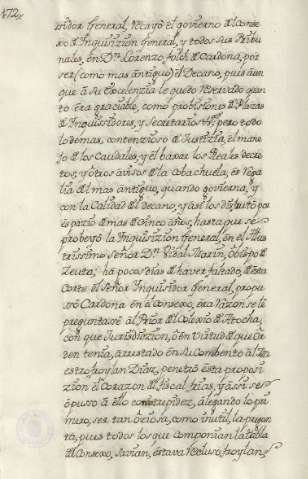 172,
ridor General, recayò el govierno del Conse-
xo de Inquisizion General, y todos sus Tribu-
nales, en Dn. Lorenzo, folch de Cardona, por
ser (como mas antiguo) el Decano, pues aun
que à Su Excelenzia le quedò reservado quan-
to era graciable, como probisiones de Plazas
de Inquisidores, y Secretarios &c, pero todo
lo demas, contenzioso de Justizia, el mane
jo de los Caudales, y el baxar los Reales decre
tos, y otros avisos de la cobachuela, es rega
lia del mas antiguo, quando govierna, y
con la Calidad de Decano, y asi lo disfrutò por
espazio de mas de Cinco años, hasta que se
probeyò la Inquisizion General, en el Illus
trissimo Señor Dn. Vidal Marin, obispo de
Zeuta; hà pocos dias de haver faltado, de esta
Corte el Señor Inquisidor General, propu
so Cardona en el Consexo, era razon se le
preguntase al Prior del Colexio de Atocha,
con que Jurisdizion, ò en Virtud de que òr
den tenia, arrestado en su Combento al M
estro froylan Diaz, penetrò esta proposi
zion el Corazon del fiscal frias, y asi se
opuso à ello con estupidez, alegando lo pri
mero, ser tan oziosa, como inutil, la pregun
ta, pues todos los que componian la tabla
del Consexo, savian, estava recluso, froylan,